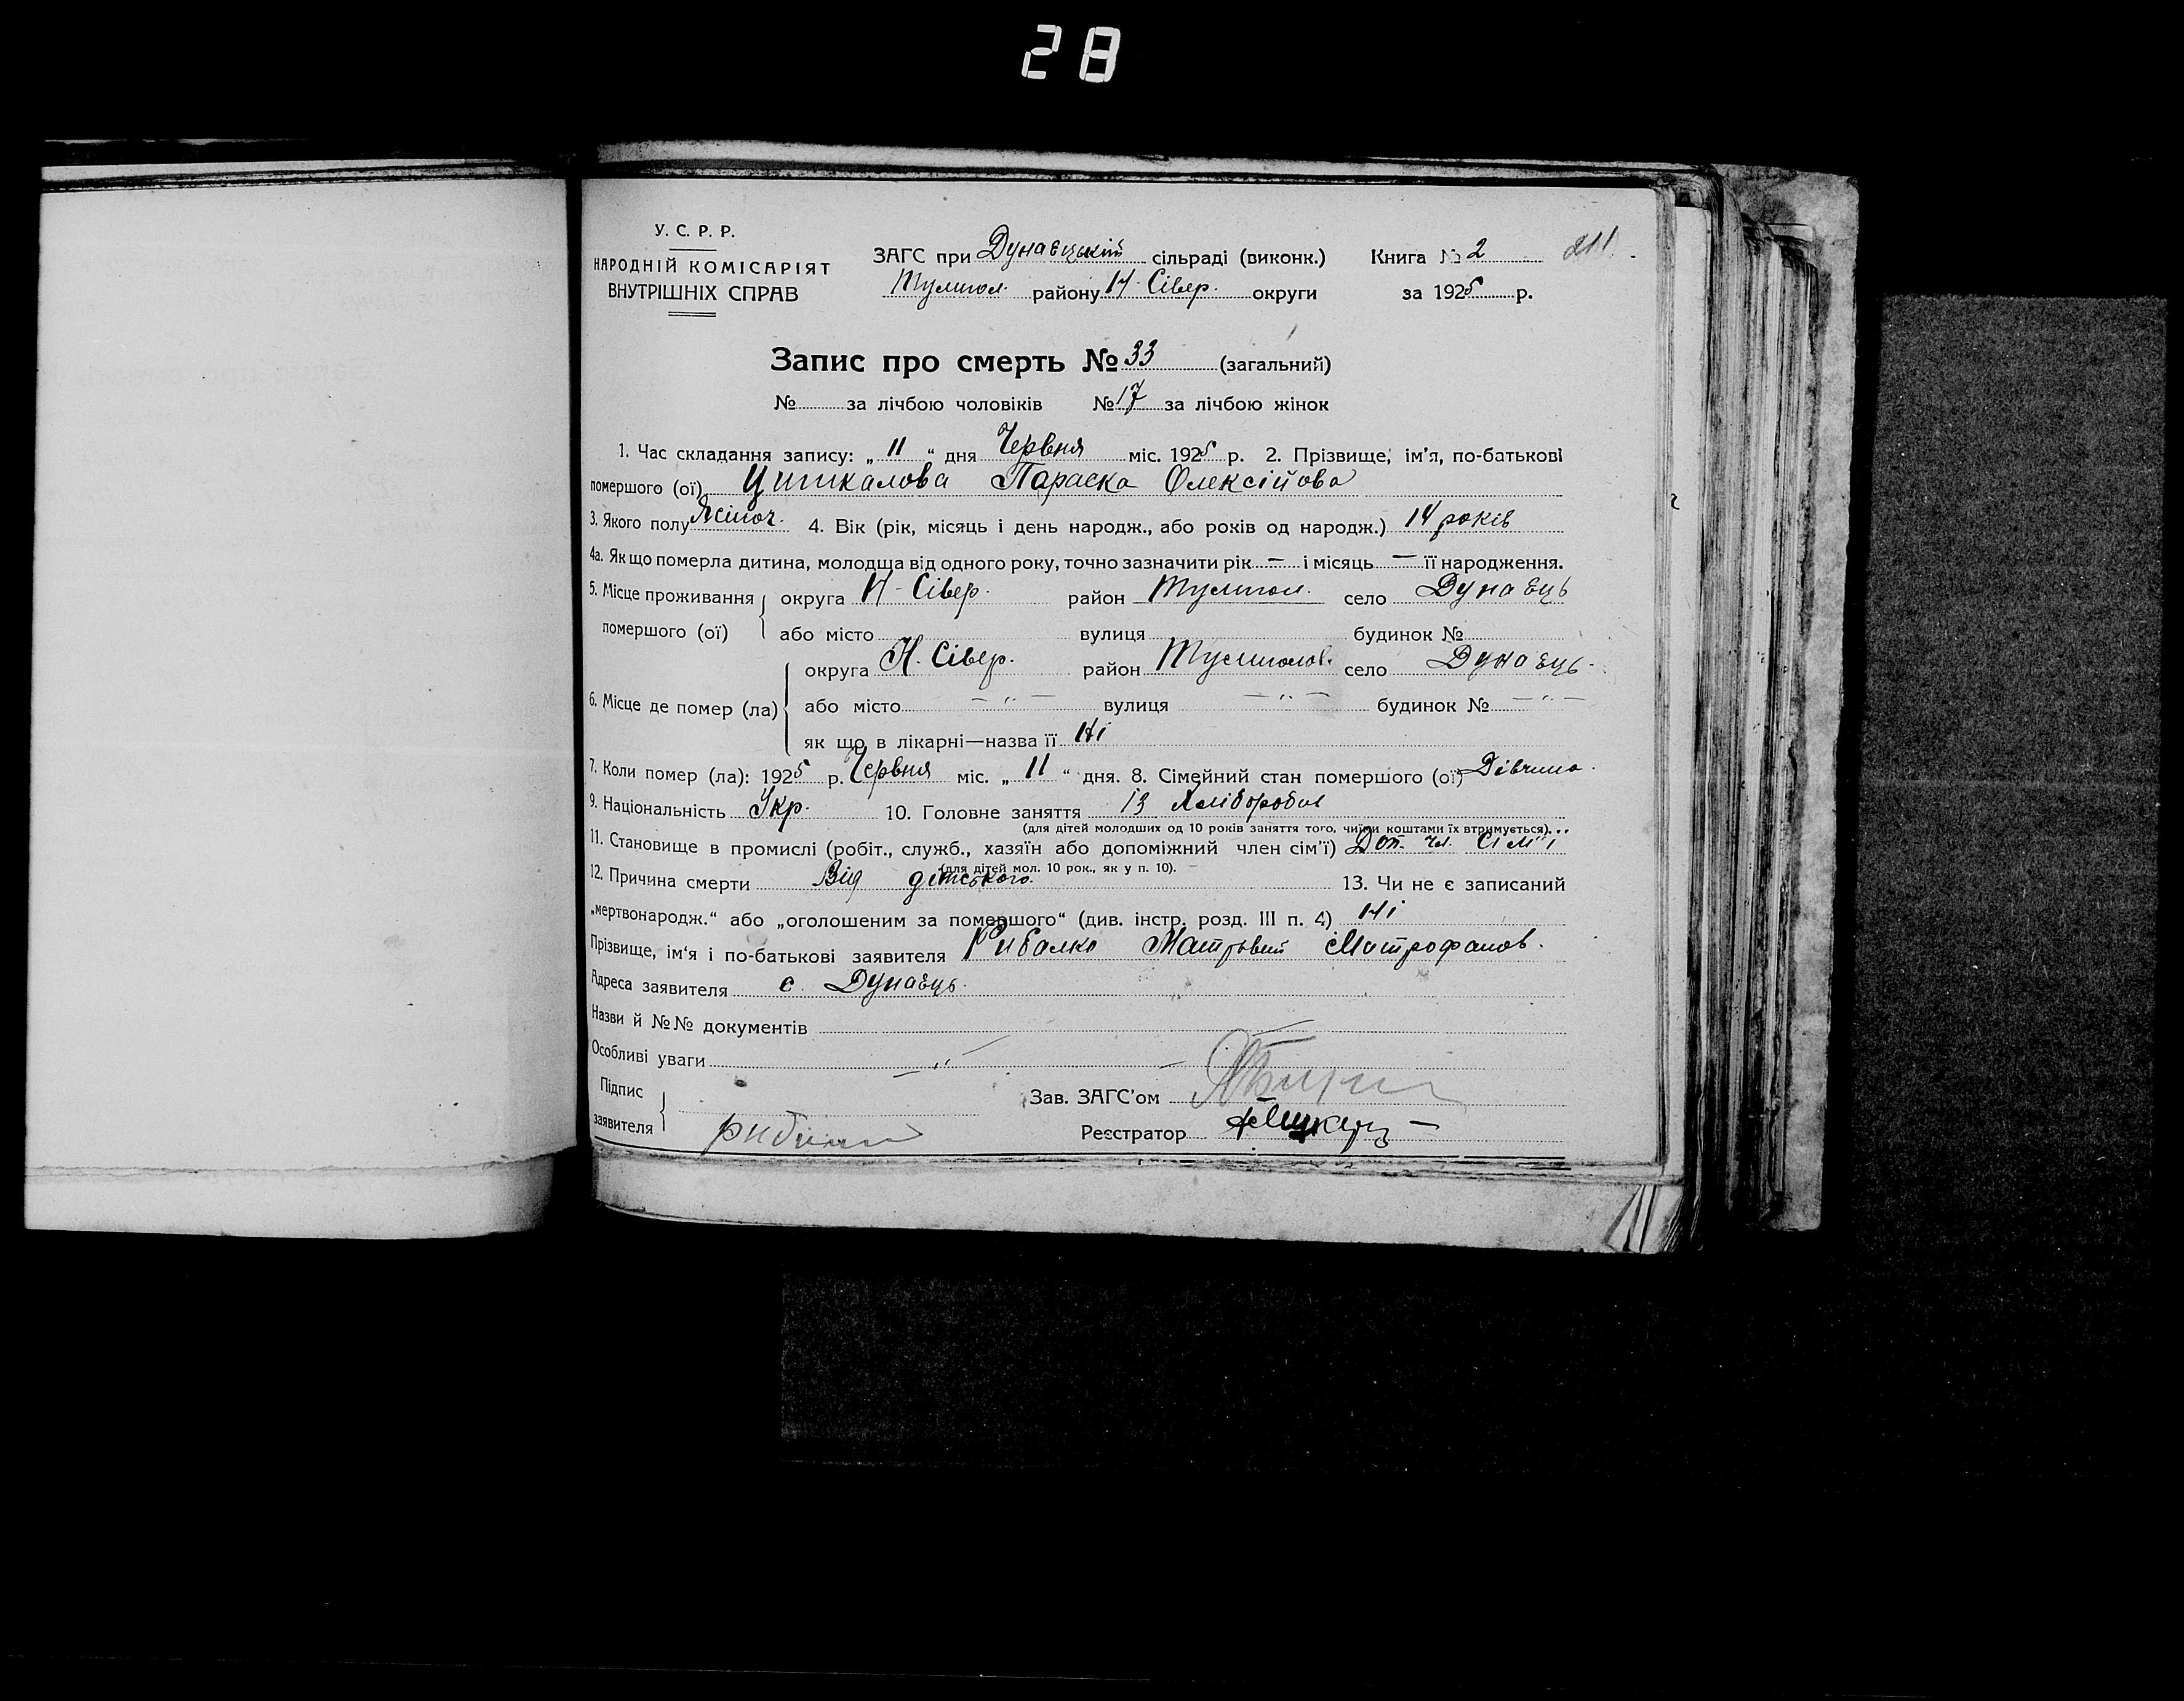 28
У. С. Р. Р.
НАРОДНІЙ КОМІСАРІЯТ
ВНУТРІШНІХ СПРАВ
ЗАГС при Дунаєцькій сільраді (виконк.) Книга № 2 211
Тулигол. району Н-Сівер. округи за 1925 р.
Запис про смерть № 33 (загальний)
№ за лічбою чоловіків № 17 за лічбою жінок
1. Час складання запису: „ 11 “ дня Червня міс. 1925 р. 2. Прізвище, ім'я, по-батькові
помершого (ої) Параска Олексійова
3. Якого полу Жіноч. 4. Вік (рік, місяць і день народж., або років од народж.) 14 років
4а. Як що померла дитина, молодща від одного року, точно зазначити рік — і місяць — її народження.
5. Місце проживання округа Н-Сівер. район Тулигол. село Дунаєць
помершого (ої) або місто вулиця будинок №
округа Н. Сівер. район Тулиголов. село Дунаєць
6. Місце де помер (ла) або місто — „ — вулиця — „ — будинок № — „ —
як що в лікарні—назва її Ні
7. Коли помер (ла): 1925 р. Червня міс. „ 11 “ дня. 8. Сімейний стан помершого (ої) Дівчина
9. Національність Укр. 10. Головне заняття Із Хлібороба
(для дітей молодших од 10 років заняття того, чиїми коштами їх втримується)...
11. Становище в промислі (робіт., служб., хазяїн або допоміжний член сім'ї) Доп. чл. сім'ї
(для дітей мол. 10 рок., як у п. 10).
12. Причина смерти Від дітського 13. Чи не є записаний
„мертвонародж.“ або „оголошеним за помершого“ (див. інстр. розд. III п. 4) Ні
Прізвище, ім'я і по-батькові заявителя Рибалко Митрофанов.
Адреса заявителя с. Дунаєць
Назви й №№ документів
Особливі уваги — „ —
Підпис
заявителя
Зав. ЗАГС'ом
Реєстратор